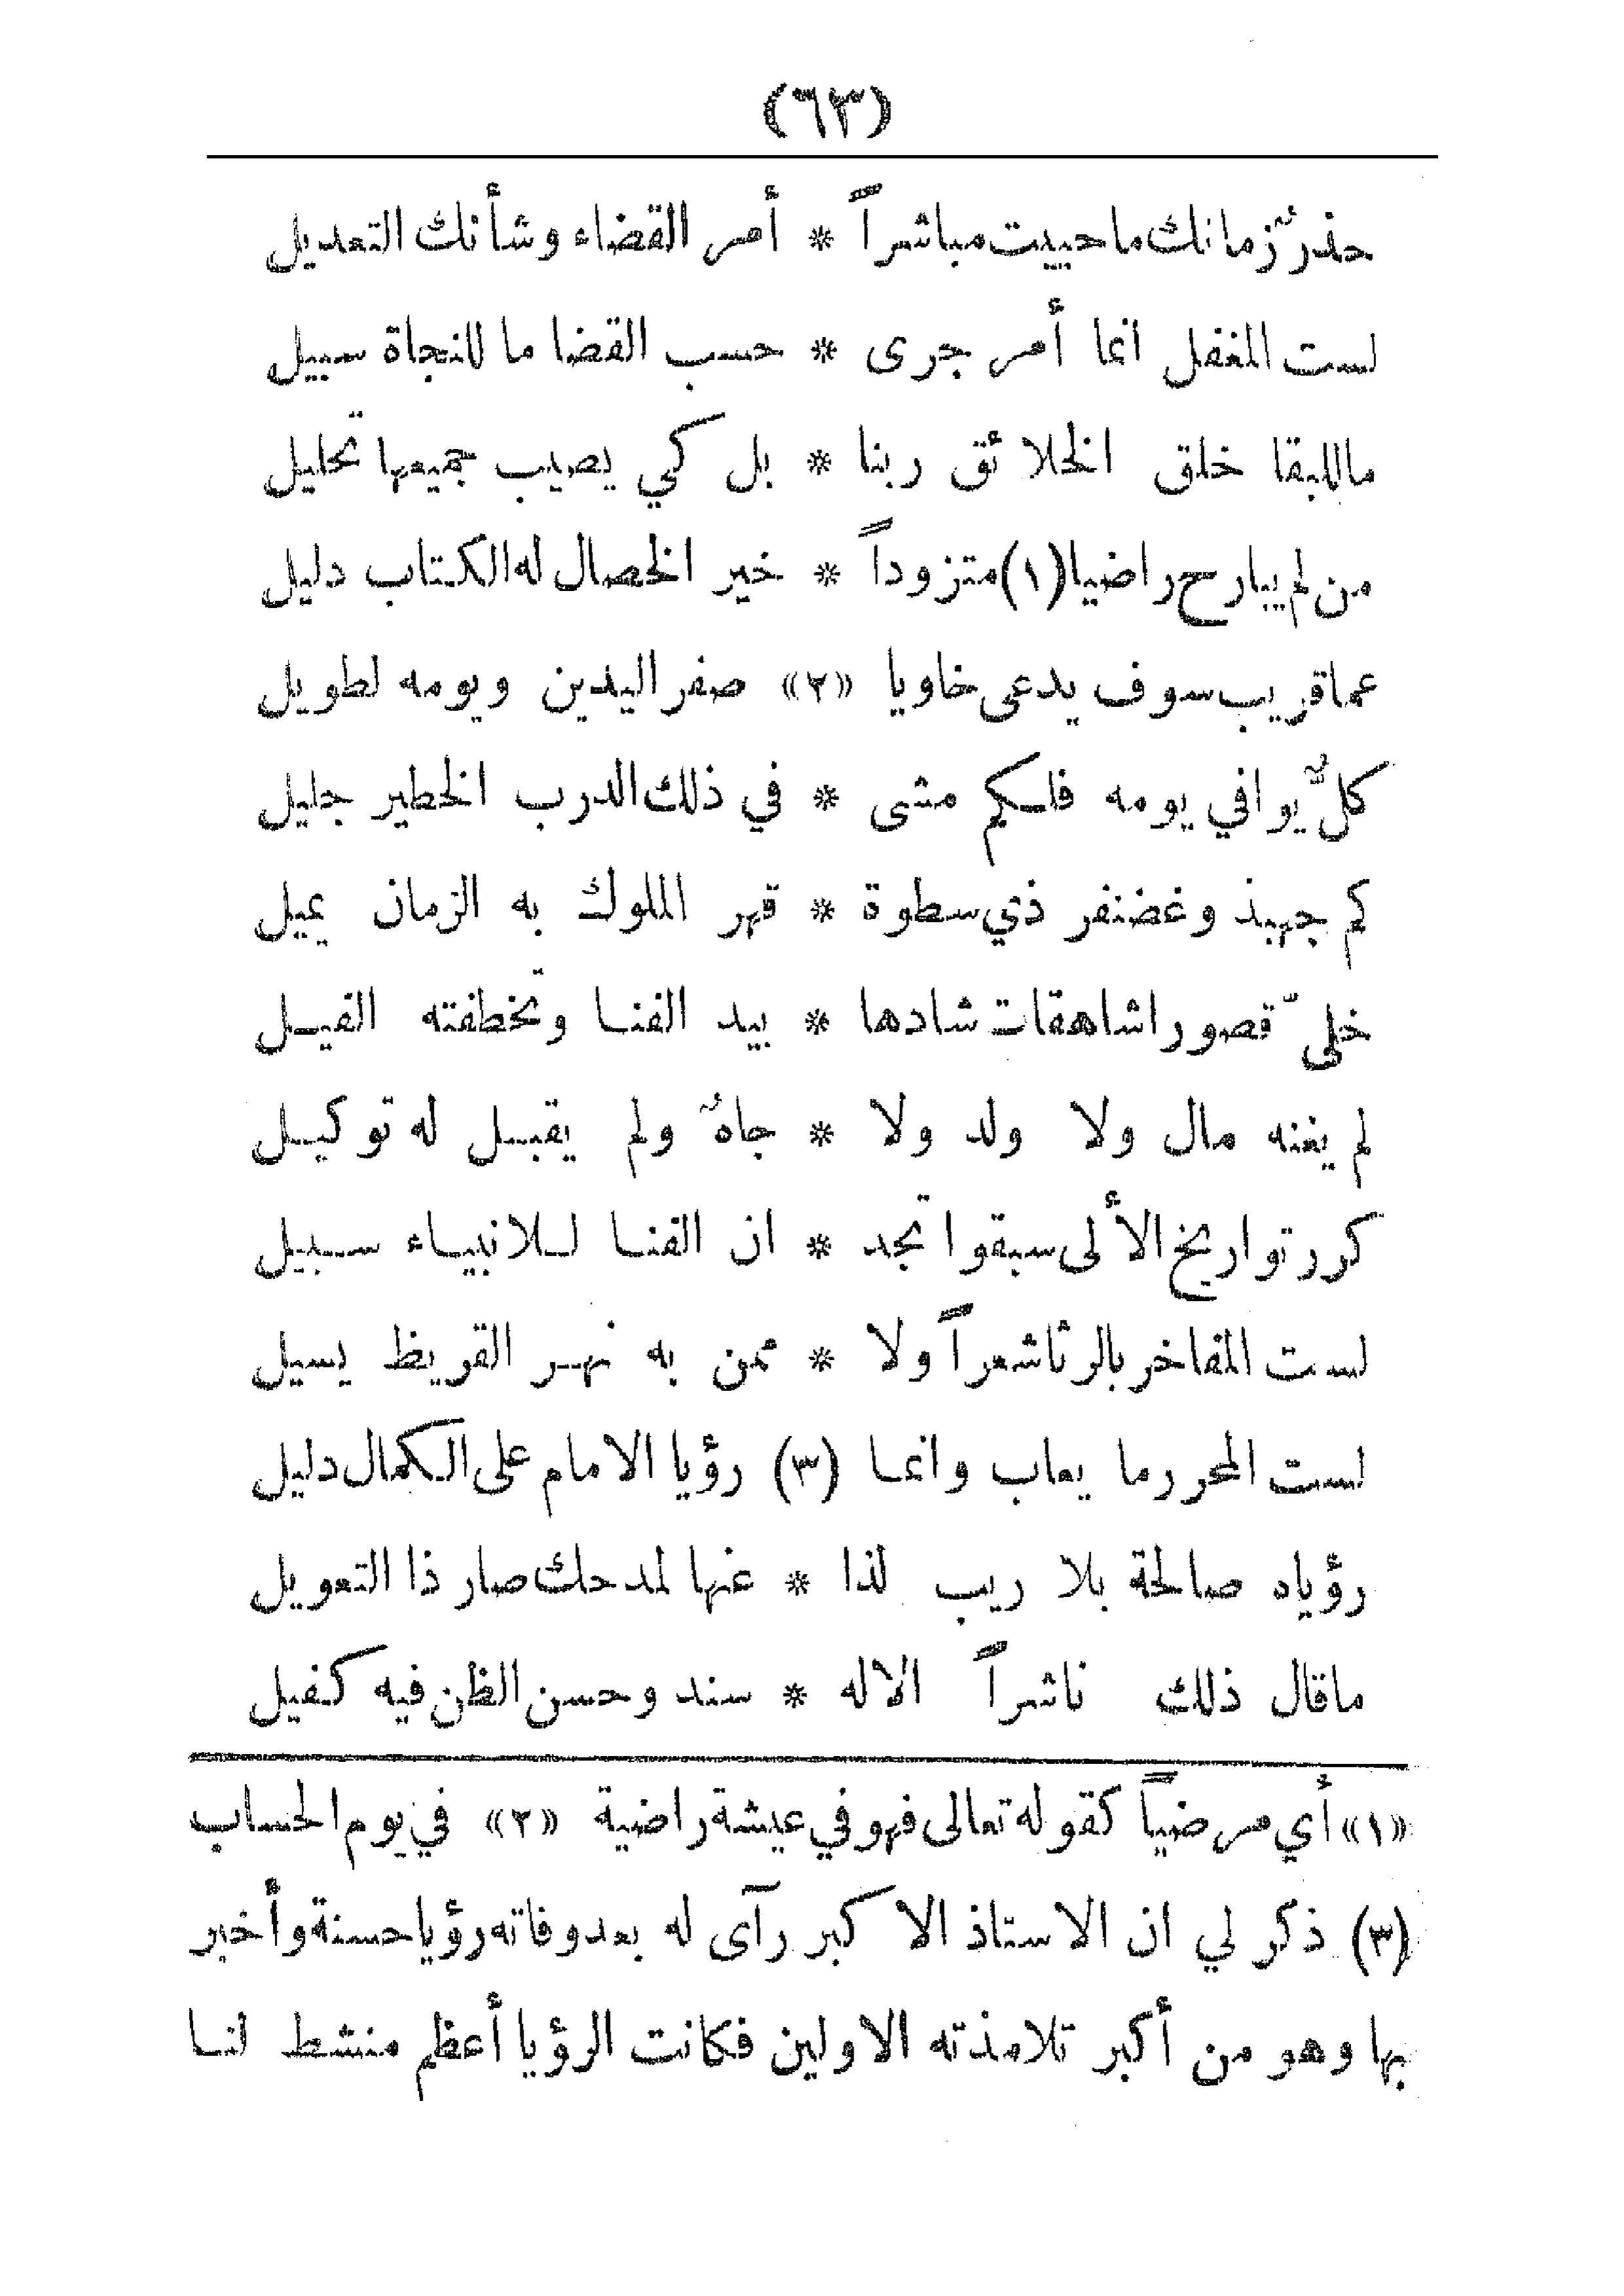 (٦٣)
حذرٌ زمانك ما حييت مباشراً * أمر القضاء وشأنك التعديل
لست المغفل انما أمر جرى * حسب القضا ما للنجاة سبيل
ما للبقا خلق الخلائق ربنا * بل كي يصيب جميعها تحليل
من لم يبارح راضيا (١) متزوداً * خير الخصال له الكتاب دليل
عما قريب سوف يدعى خاويا «٢» صفر اليدين ويومه لطويل
كلٌّ يوافي يومه فلكم مشى * في ذلك الدرب الخطير جليل
كم جهبذ وغضنفر ذي سطوة * قهر الملوك به الزمان يميل
خلىّ قصورا شاهقات شادها * بيد الفنا وتخطفته الغيل
لم يغنه مال ولا ولد ولا * جاهٌ ولم يقبل له توكيل
كرر تواريخ الألى سبقوا تجد * ان الفنا للانبياء سبيل
لست المفاخر بالرثا شعراً ولا * ممن به نهر القريظ يسيل
لست المحرر ما يعاب وانما (٣) رؤيا الامام على الكمال دليل
رؤياه صالحة بلا ريب لذا * عنها لمدحك صار ذا التعويل
ما قال ذلك ناشراً الا له * سند وحسن الظن فيه كفيل
«١» أي مرضياً كقوله تعالى فهو في عيشة راضية «٢» في يوم الحساب
(٣) ذكر لي ان الاستاذ الاكبر رآى له بعد وفاته رؤيا حسنة وأخبر
بها وهو من أكبر تلامذته الاولين فكانت الرؤيا أعظم منشط لنا